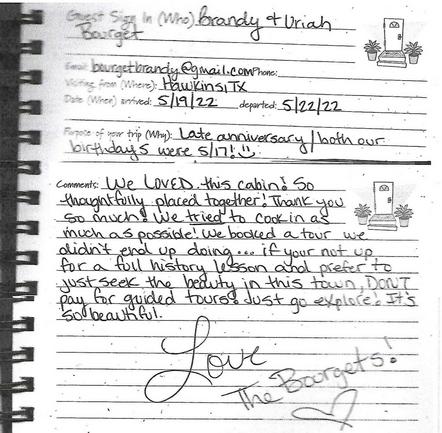 Guest Sign In (Who) Brandy & Uriah
Bourget
Email: bourgetbrandy@gmail.com Phone:
Visiting from (Where): Hawkins, TX
Date (When) arrived: 5/19/22 departed: 5/22/22
Purpose of your trip (Why): Late anniversary / both our
birthdays were 5/17!
Comments: We LOVED this cabin! So
thoughtfully placed together! Thank you
so much! We tried to cook in as
much as possible! We booked a tour we
didn't end up doing... if your not up
for a full history lesson and prefer to
just seek the beauty in this town, DON'T
pay for guided tours! Just go explore! It's
so beautiful.
Love
The Bourgets!